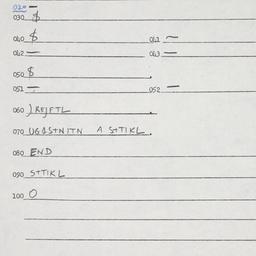 020 —
030 $
040 $ 041 —
042 — 043 —
050 $
051 — 052 —
060 ) REJFTL
070 A STTIKL.
080 END
090 STTIKL
100 O